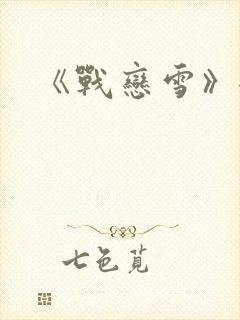 《戰戀雪》
七色莧